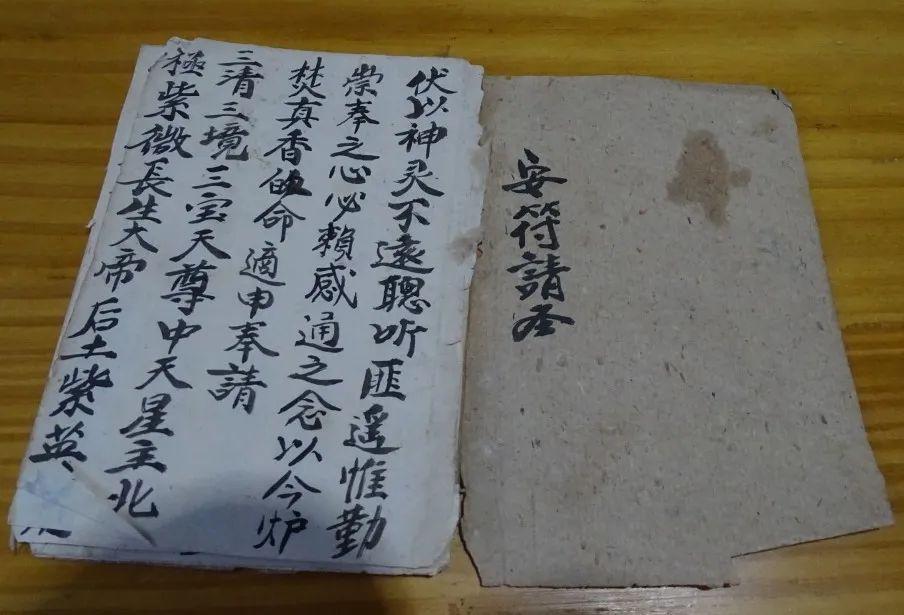 安符請圣
伏以神灵不遠聰听匪遥惟勤
崇奉之心必賴感通之念以今炉
焚真香皈命適申奉請
三清三境三宝天尊中天星主北
極紫微長生大帝后土紫英